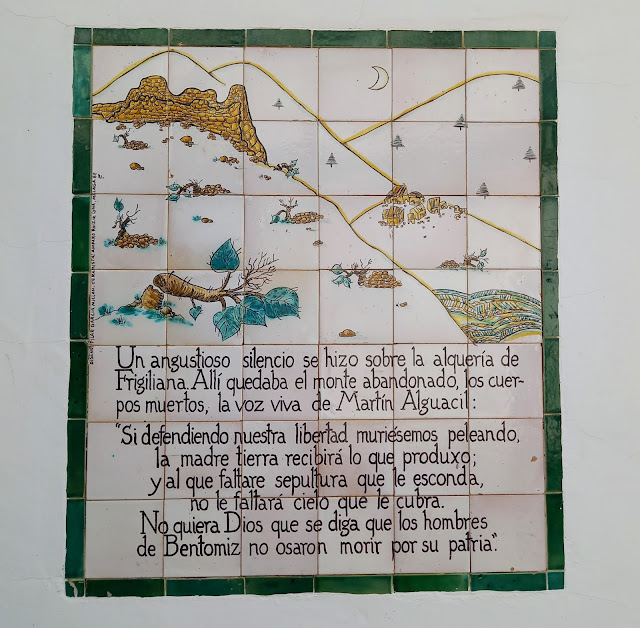 Un angustioso silencio se hizo sobre la alquería de
Frigiliana. Allí quedaba el monte abandonado, los cuer-
pos muertos, la voz viva de Martín Alguacil:
"Si defendiendo nuestra libertad muriésemos peleando,
la madre tierra recibirá lo que produxo;
y al que faltare sepultura que le esconda,
no le faltará cielo que le cubra.
No quiera Dios que se diga que los hombres
de Bentomiz no osaron morir por su patria".